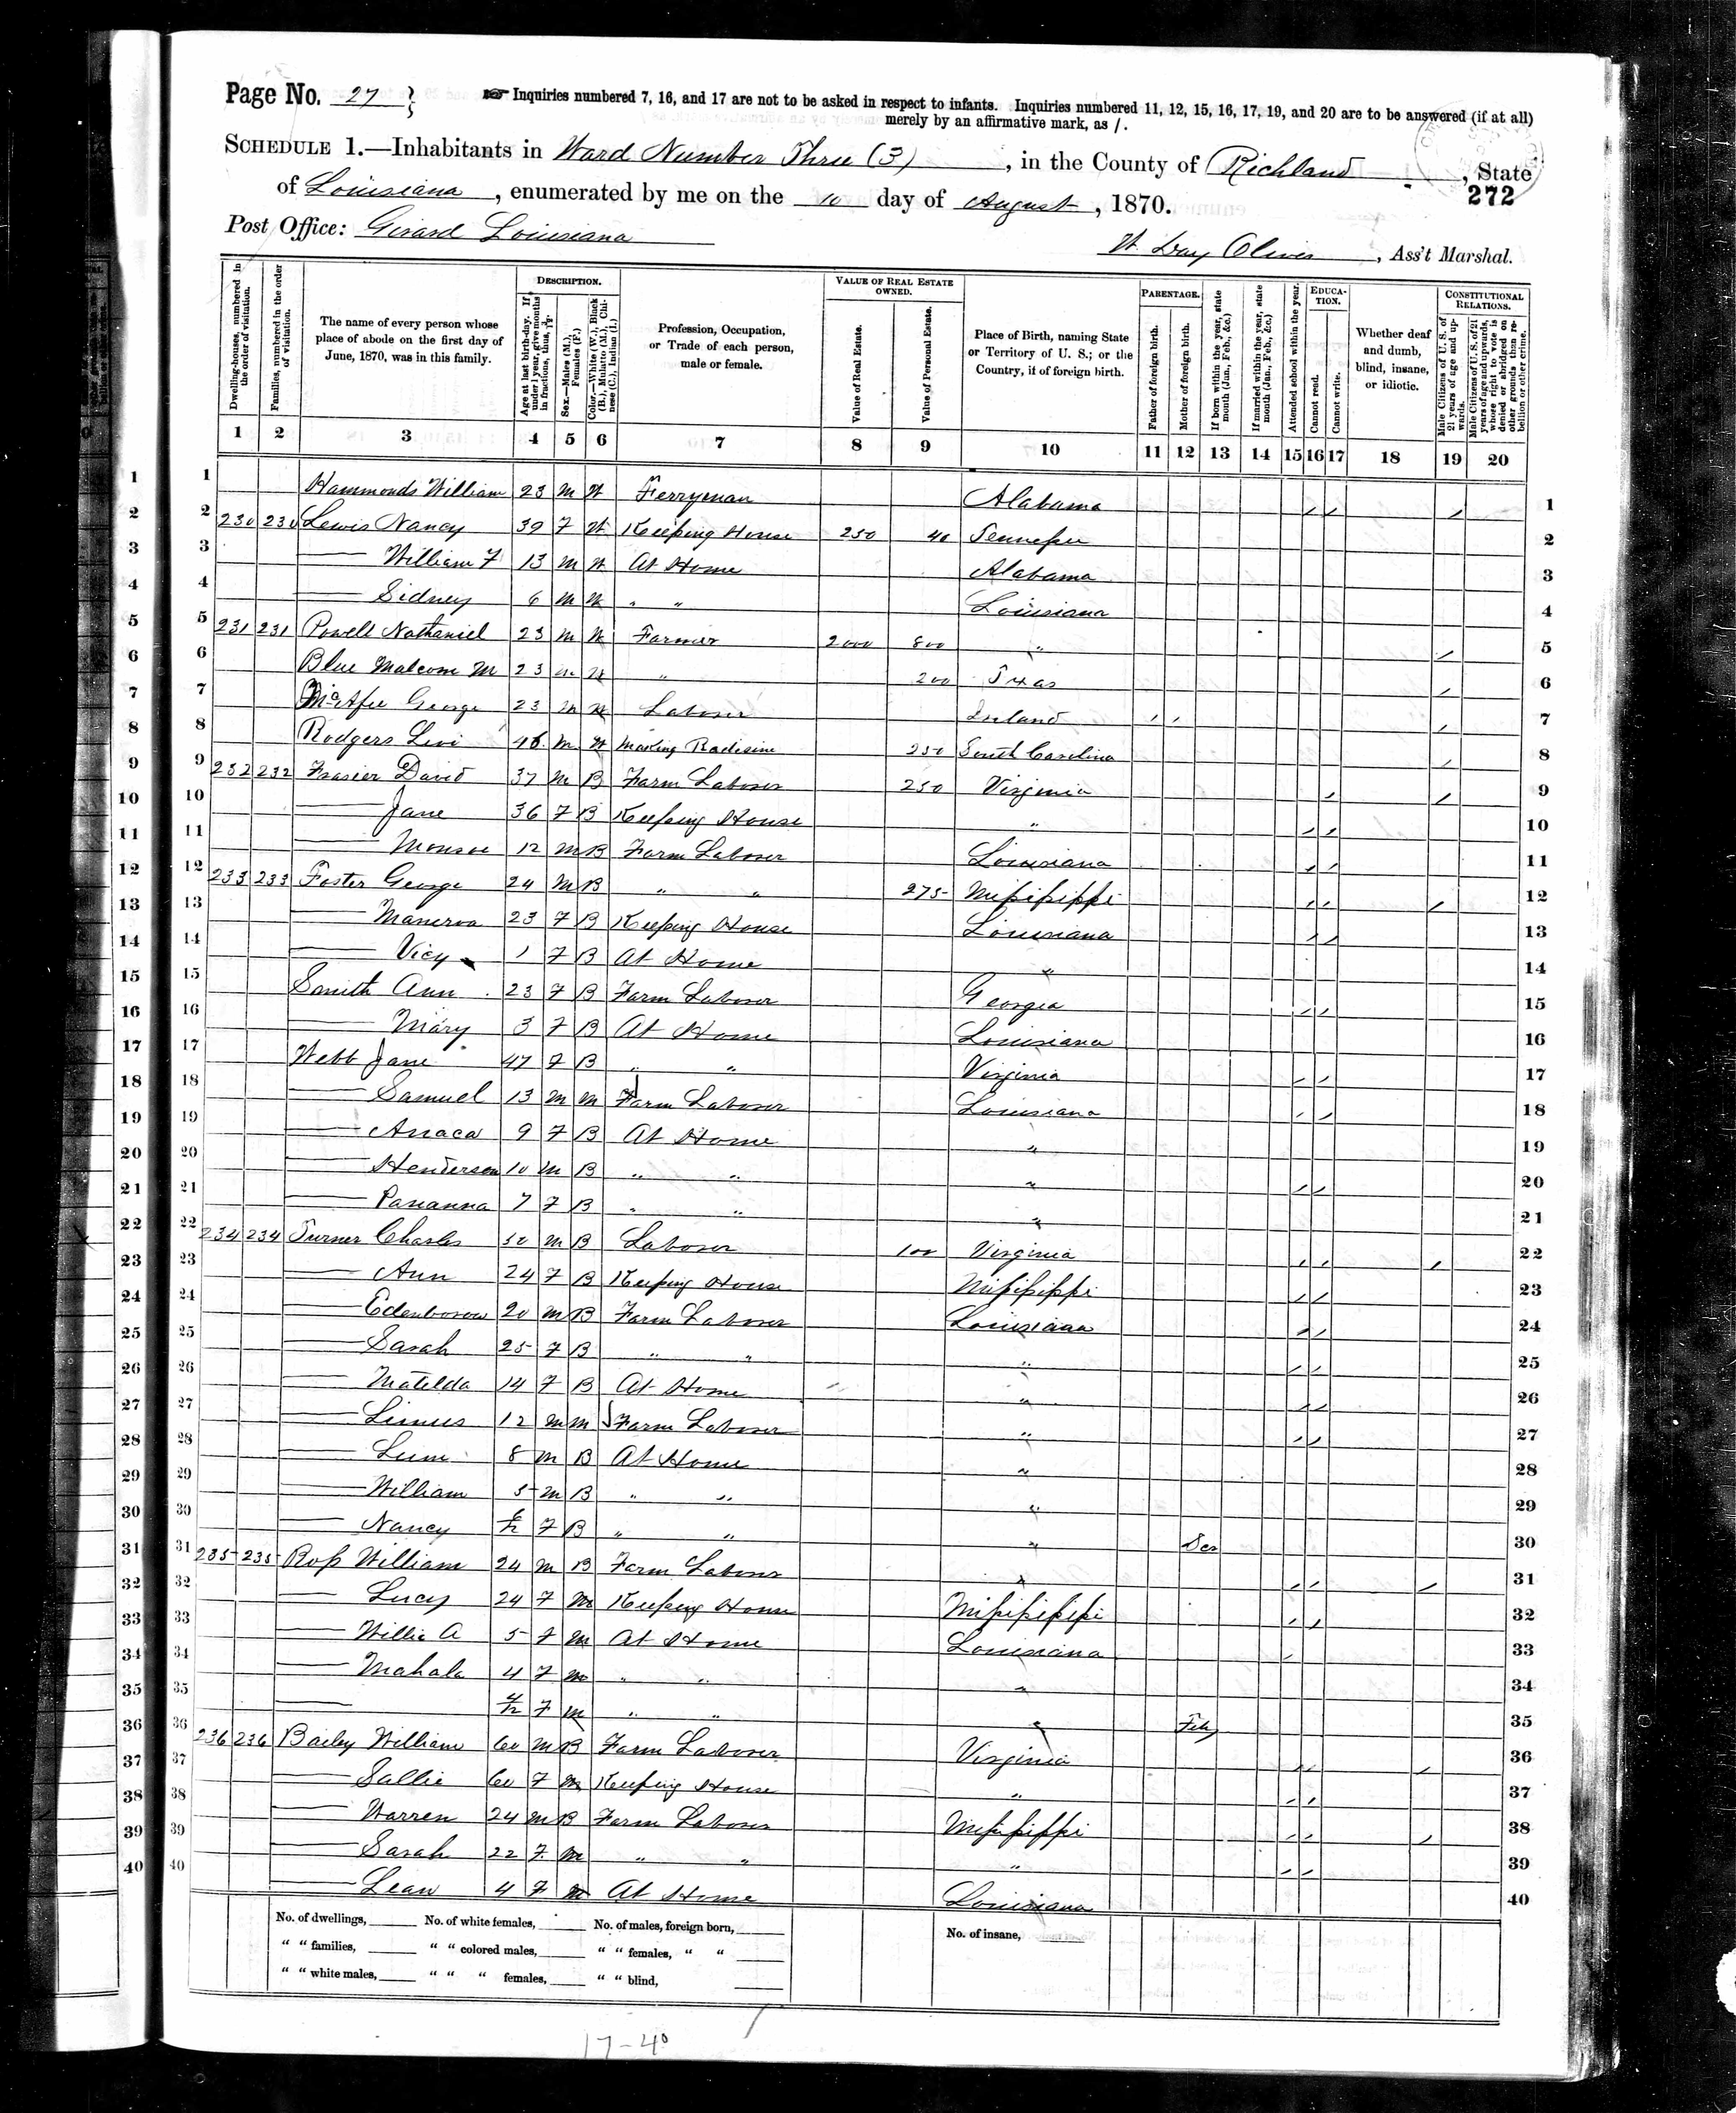 Page No. 27
☞ Inquiries numbered 7, 16, and 17 are not to be asked in respect to infants. Inquiries numbered 11, 12, 15, 16, 17, 19, and 20 are to be answered (if at all)
merely by an affirmative mark, as /.
SCHEDULE 1.—Inhabitants in Ward Number Three (3), in the County of Richland, State
of Louisiana, enumerated by me on the 10 day of August, 1870.
272
Post Office: Girard Louisiana
W. Day Oliver, Ass't Marshal.
Dwelling-houses, numbered in the order of visitation.
Families, numbered in the order of visitation.
The name of every person whose place of abode on the first day of June, 1870, was in this family.
DESCRIPTION.
Age at last birth-day. If under 1 year, give months in fractions, thus, 3/12.
Sex.—Males (M.), Females (F.)
Color.—White (W.), Black (B.), Mulatto (M.), Chinese (C.), Indian (I.)
Profession, Occupation, or Trade of each person, male or female.
VALUE OF REAL ESTATE OWNED.
Value of Real Estate.
Value of Personal Estate.
Place of Birth, naming State or Territory of U. S.; or the Country, if of foreign birth.
PARENTAGE.
Father of foreign birth.
Mother of foreign birth.
If born within the year, state month (Jan., Feb., &c.)
If married within the year, state month (Jan., Feb., &c.)
EDUCATION.
Attended school within the year.
Cannot read.
Cannot write.
Whether deaf and dumb, blind, insane, or idiotic.
CONSTITUTIONAL RELATIONS.
Male Citizens of U. S. of 21 years of age and upwards.
Male Citizens of U. S. of 21 years of age and upwards, whose right to vote is denied or abridged on other grounds than rebellion or other crime.
1 2 3 4 5 6 7 8 9 10 11 12 13 14 15 16 17 18 19 20
1 Hammonds William 23 M W Ferryman Alabama / / / 1
2 230 230 Lewis Nancy 39 F W Keeping House 250 40 Tennessee 2
3 — William F 13 M W At Home Alabama 3
4 — Sidney 6 M W " " Louisiana 4
5 231 231 Powell Nathaniel 23 M W Farmer 2000 800 " / 5
6 Blue Malcom M 23 M W " 200 Texas / 6
7 McAfee George 23 M W Laborer Ireland / / / 7
8 Rodgers Levi M W 250 South Carolina / 8
9 232 232 Frasier David 37 M B Farm Laborer 250 Virginia / / 9
10 — Jane 36 F B Keeping House " / / 10
11 — Monroe 12 M B Farm Laborer Louisiana / / 11
12 233 233 Foster George 24 M B " " 275 Mississippi / / / 12
13 — Manerva 23 F B Keeping House Louisiana / / 13
14 — Vicy 1 F B At Home " 14
15 Smith Ann 23 F B Farm Laborer Georgia / / 15
16 — Mary 3 F B At Home Louisiana 16
17 Webb Jane 47 F B " " Virginia / / 17
18 — Samuel 13 M M Farm Laborer Louisiana / / 18
19 — Anaca 9 F B At Home " 19
20 — Henderson 10 M B " " " / / 20
21 — Parianna 7 F B " " " 21
22 234 234 Turner Charles 50 M B Laborer 100 Virginia / / / 22
23 — Ann 24 F B Keeping House Mississippi / / 23
24 — Edenborow 20 M B Farm Laborer Louisiana / / 24
25 — Sarah 25 F B " " " / / 25
26 — Matilda 14 F B At Home " / / 26
27 — Limus 12 M M Farm Laborer " / / 27
28 — Lum 8 M B At Home " 28
29 — William 5 M B " " " 29
30 — Nancy F B " " " 30
31 235 235 Ross William 24 M B Farm Laborer " / / / 31
32 — Lucy 24 F M Keeping House Mississippi / / 32
33 — Willie A 5 F M At Home Louisiana / 33
34 — Mahala 4 F M " " " 34
35 — 4/12 F M " " " Feb 35
36 236 236 Bailey William 60 M B Farm Laborer Virginia / / / 36
37 — Sallie 60 F M Keeping House " / / 37
38 — Warren 24 M B Farm Laborer Mississippi / / / 38
39 — Sarah 22 F M " " " / / 39
40 — Lean 4 F M At Home Louisiana 40
No. of dwellings, No. of white females, No. of males, foreign born, No. of insane,
" " families, " " colored males, " " females, " "
" " white males, " " " females, " " blind,
17-40